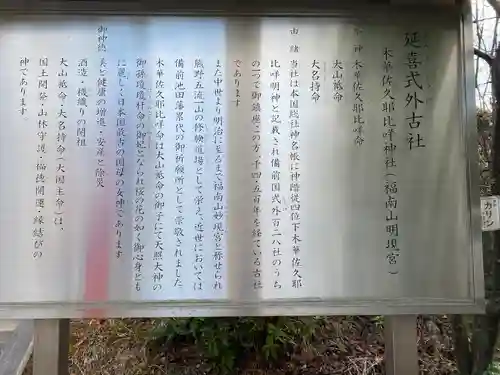 延喜式外古社
木華佐久耶比咩神社(福南山明現宮)
祭神 木華佐久耶比咩命
大山祗命
大名持命
由緒 当社は本国総社神名帳に神階従四位下木華佐久耶
比咩明神と記載され備前国式外百二八社のうち
の一つで御鎮座この方一千四・五百年を経ている古社
であります
また中世より明治に至るまで福南山妙現宮と称せられ
熊野五流一山の修験道場として栄え、近世においては
備前池田藩累代の御祈願所として崇敬されました。
木華佐久耶比咩命は大山祗命の御子にて天照大神の
御孫瓊瓊杵命の御妃となられ桜の花の如く御心身とも
に麗しく日本国最古の国母の女神であります
御神徳 美と健康の増進・安産と除災
酒造・機織りの開祖
大山祗命・大名持命(大国主命)は、
国土開発・山林守護・福徳開運・縁結びの
神であります。
カリン